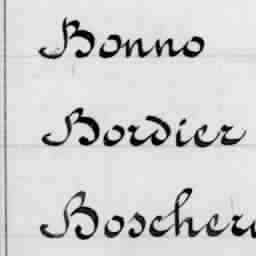 Bonno
Bordier
Boscher